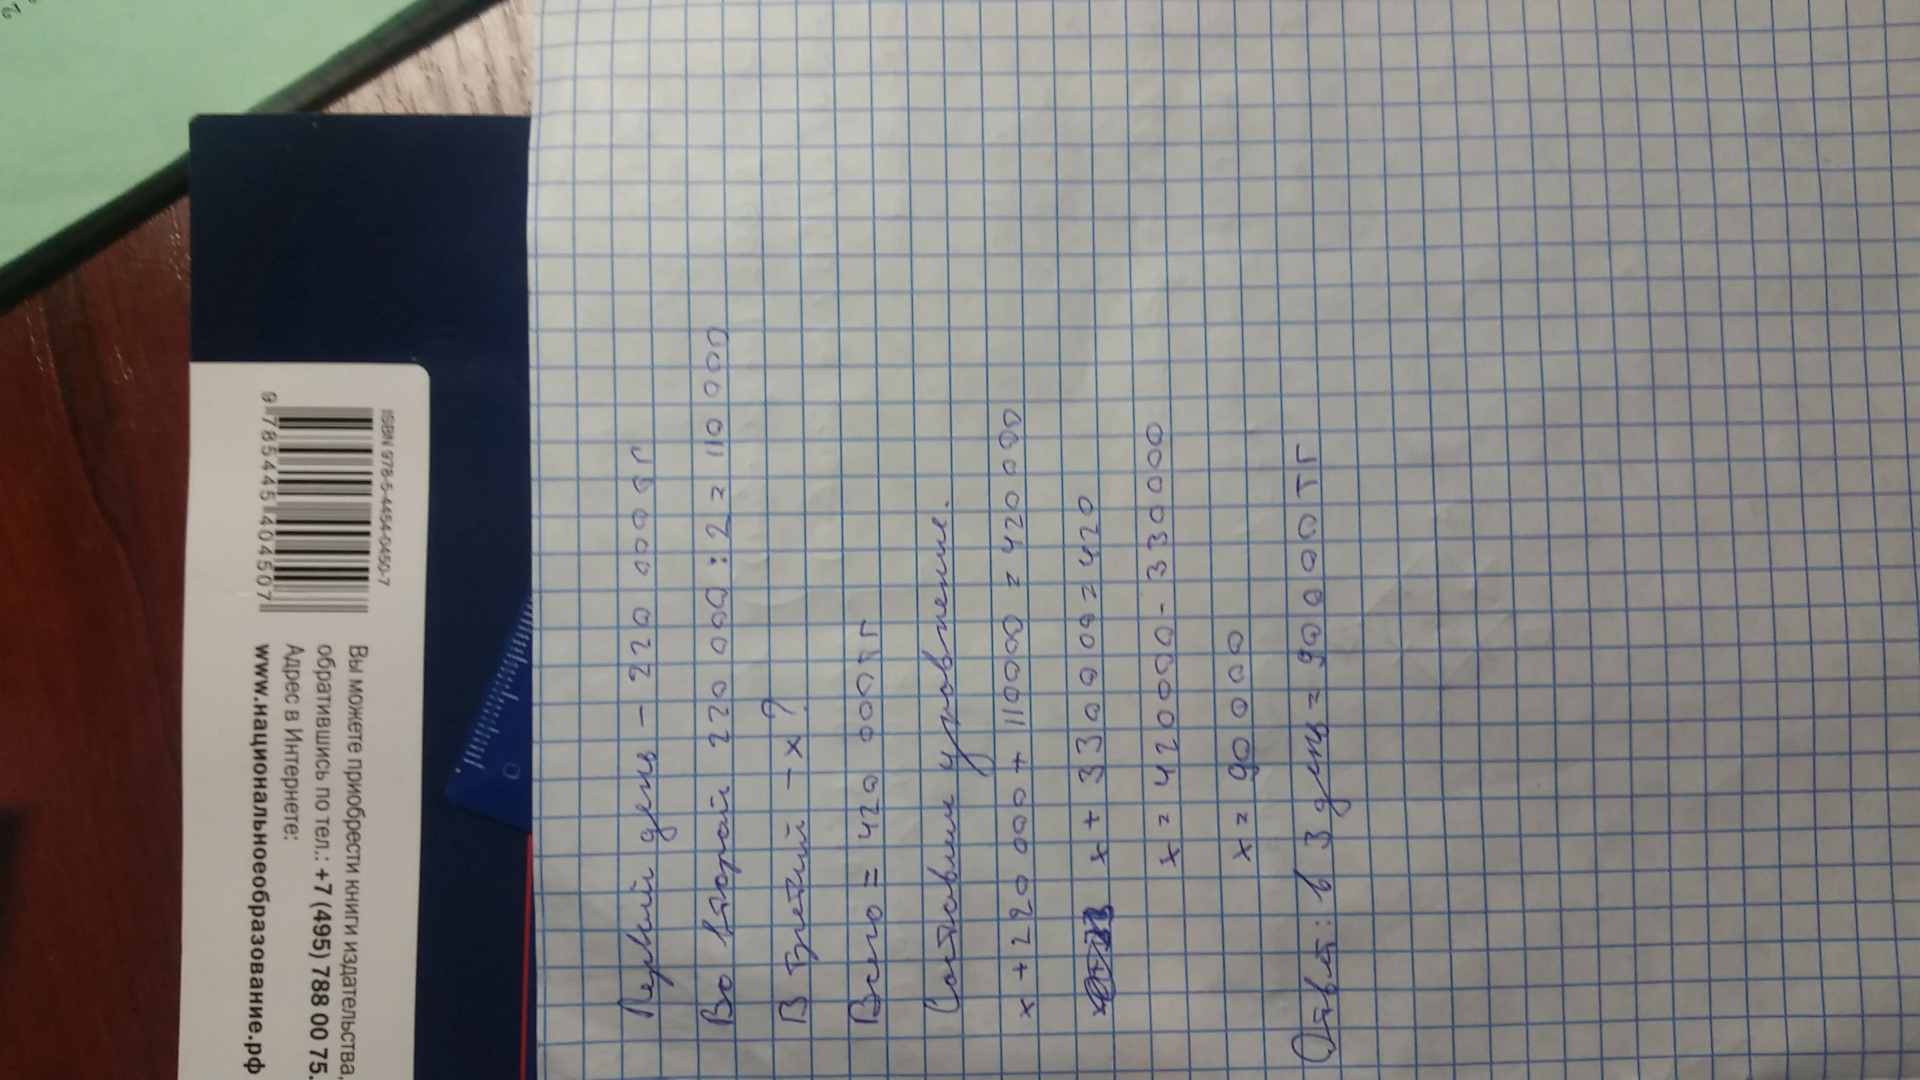 Первый день – 220 000 тг
Во второй 220 000 : 2 = 110 000
В третий – x?
Всего = 420 000 тг
Составим уравнение.
x + 220 000 + 110000 = 420 000
x + 330 000 = 420
x = 420000 - 330000
x = 90 000
Ответ: в 3 день = 90 000 тг
9 785445 404507
ISBN 978-5-4454-0450-7
Вы можете приобрести книги издательства,
обратившись по тел.: +7 (495) 788 00 75.
Адрес в Интернете:
www.национальноеобразование.рф
0